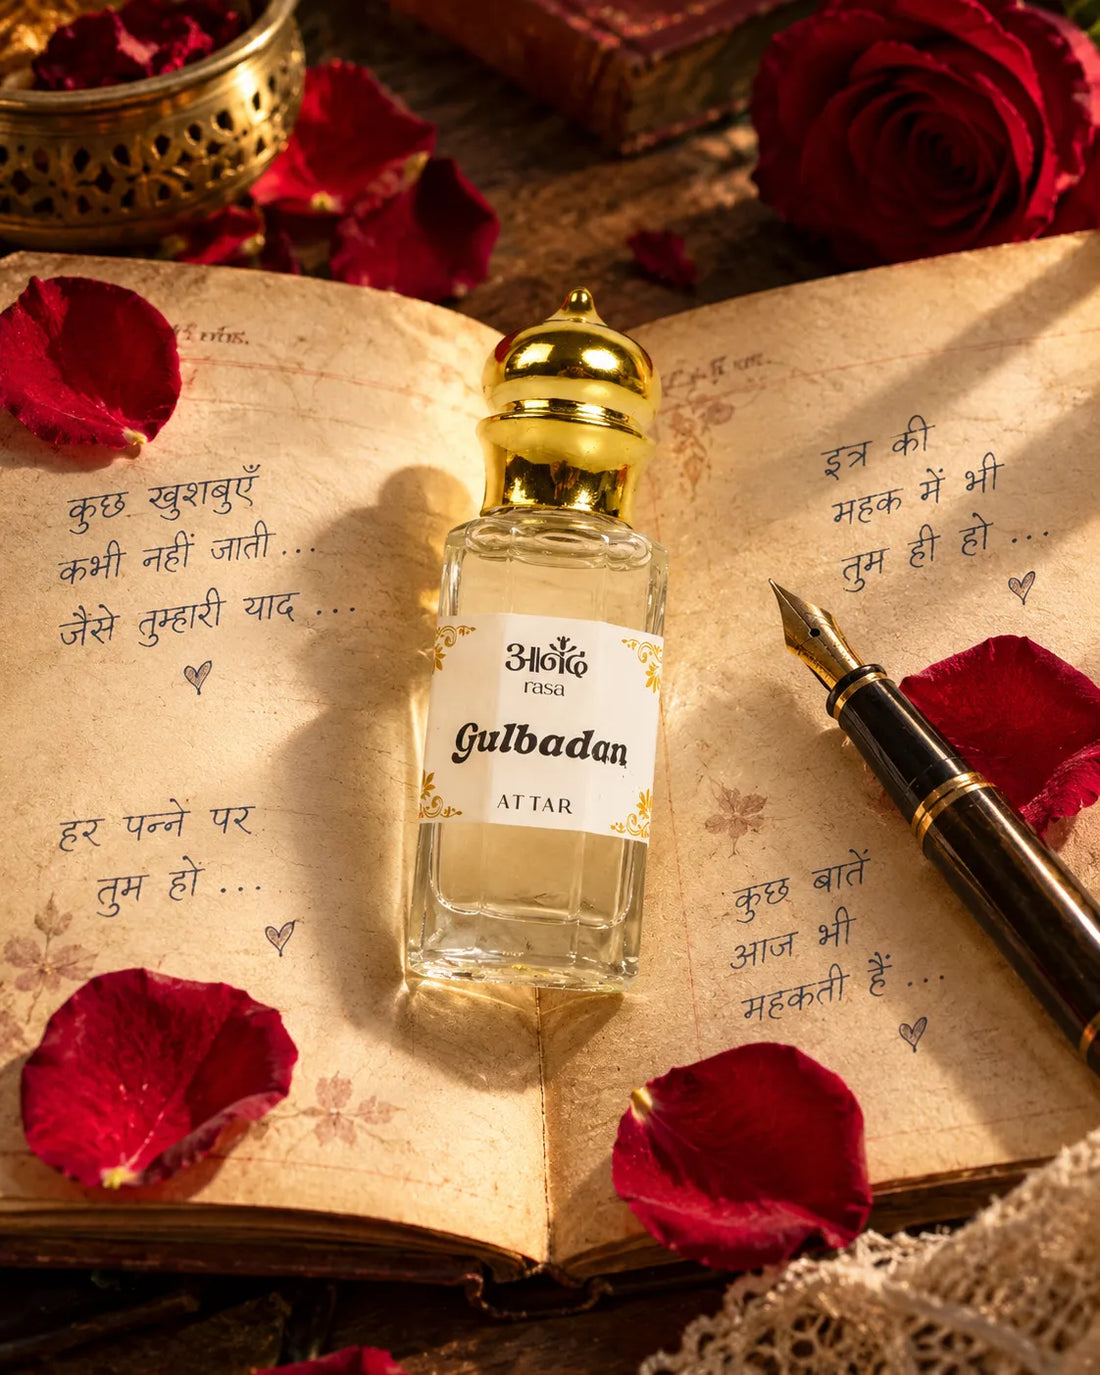 कुछ खुशबुएँ
कभी नहीं जाती ...
जैसे तुम्हारी याद ...
हर पन्ने पर
तुम हो ...
आनंद
rasa
Gulbadan
ATTAR
इत्र की
महक में भी
तुम ही हो ...
कुछ बातें
आज भी
महकती हैं ...